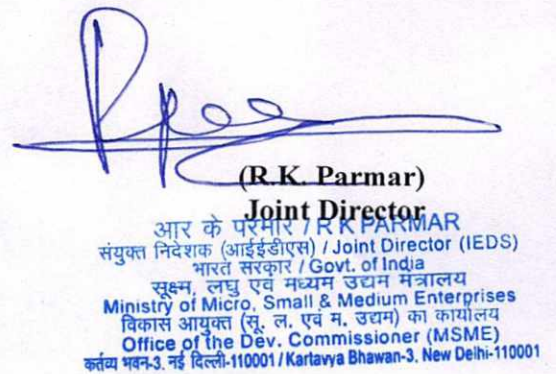 (R.K. Parmar)
Joint Director
आर के परमार / R K PARMAR
संयुक्त निदेशक (आईईडीएस) / Joint Director (IEDS)
भारत सरकार / Govt. of India
सूक्ष्म, लघु एवं मध्यम उद्यम मंत्रालय
Ministry of Micro, Small & Medium Enterprises
विकास आयुक्त (सू. ल. एवं म. उद्यम) का कार्यालय
Office of the Dev. Commissioner (MSME)
कर्तव्य भवन-3, नई दिल्ली-110001 / Kartavya Bhawan-3, New Delhi-110001